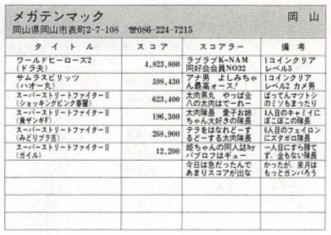 メガテンマック 岡山
岡山県岡山市表町2-7-108 ☎086-224-7215
タイトル スコア スコアラー 備考
ワールドヒーローズ2 4,823,800 ラブラブK-NAM 1コインクリア
(ドラ夫) 同好会会員NO32 レベル5
サムラスピリッツ 598,430 アナ男 よしみちゃ 1コインクリア
(ハオー丸) ん最高オース! レベル2 カメ男
スーパーストリートファイターII 623,400 太肉男丸 やっぱ全 ばってんマツトシ
(ショッキングピンク春麗) 八の太肉はでーれー のミソもまったり
スーパーストリートファイターII 196,300 太肉隊長 愛子お姉 4人目のキャミイに
(黄ザンギF) ちゃん大好きの隊長 ぼこぼこの隊長
スーパーストリートファイターII 268,900 テラをはなれどーす 6人目のフェイロン
(みどりブラ夫) るどーする太肉隊長 にズタボロ隊長
スーパーストリートファイターII 12,200 姫ちゃんの同人誌by 一人目にすら勝て
(ガイル) パブロフはギュー ず。金もない隊長
今日は急だったんで かったが、来月は
あまりスコアが出な もっとガンバろう